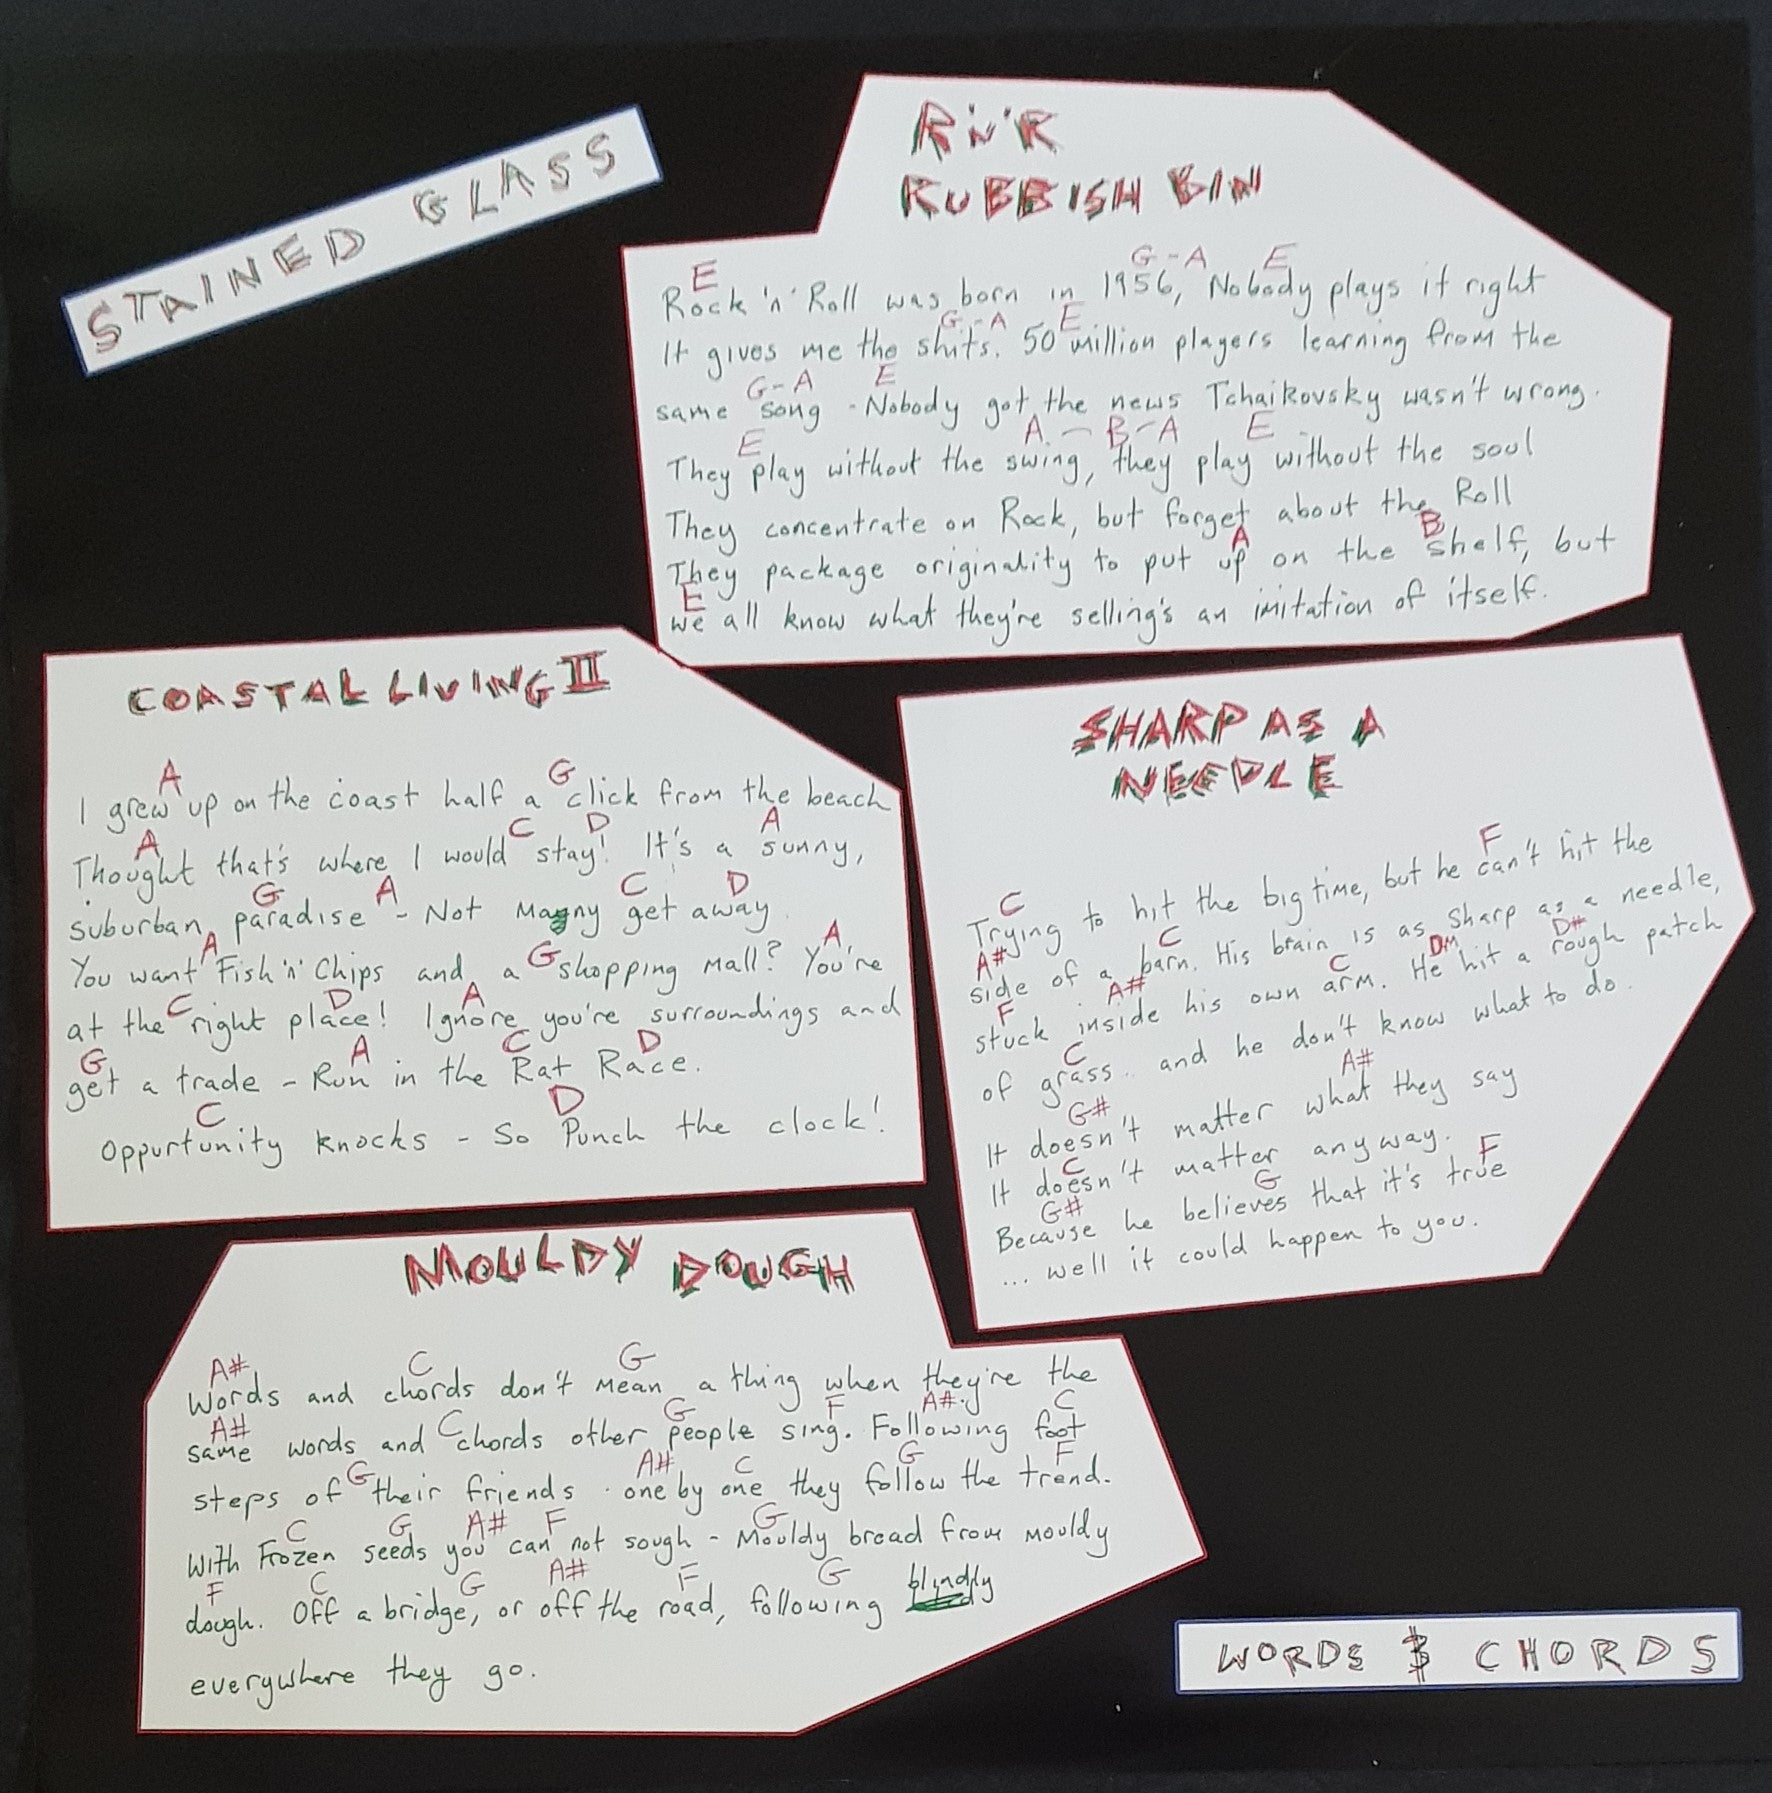 STAINED GLASS
R'N'R
RUBBISH BIN
E G-A E
Rock 'n' Roll was born in 1956, Nobody plays it right
G-A E
It gives me the shits. 50 million players learning from the
G-A E
same song - Nobody got the news Tchaikovsky wasn't wrong.
E A-B-A E
They play without the swing, they play without the soul
They concentrate on Rock, but forget about the Roll
A B
They package originality to put up on the shelf, but
E
we all know what they're selling's an imitation of itself.
COASTAL LIVING II
A G
I grew up on the coast half a click from the beach
A C D A
Thought that's where I would stay! It's a sunny,
G A C D
suburban paradise - Not Many get away.
A G A
You want Fish 'n' Chips and a shopping mall? You're
C D A
at the right place! Ignore you're surroundings and
G A C D
get a trade - Run in the Rat Race.
C D
Oppurtunity knocks - So Punch the clock!
SHARP AS A
NEEDLE
C F
Trying to hit the big time, but he can't hit the
A# C
side of a barn. His brain is as sharp as a needle,
F A# C DM D#
stuck inside his own arm. He hit a rough patch
C
of grass.. and he don't know what to do.
G# A#
It doesn't matter what they say
C
It doesn't matter anyway.
G# G F
Because he believes that it's true
... well it could happen to you.
MOULDY DOUGH
A# C G
Words and chords don't mean a thing when they're the
A# C G F A# C
same words and chords other people sing. Following foot
G A# C G F
steps of their friends. one by one they follow the trend.
C G A# F G
With Frozen seeds you can not sough - Mouldy bread from mouldy
F C G A# F G
dough. Off a bridge, or off the road, following blindly
everywhere they go.
WORDS & CHORDS